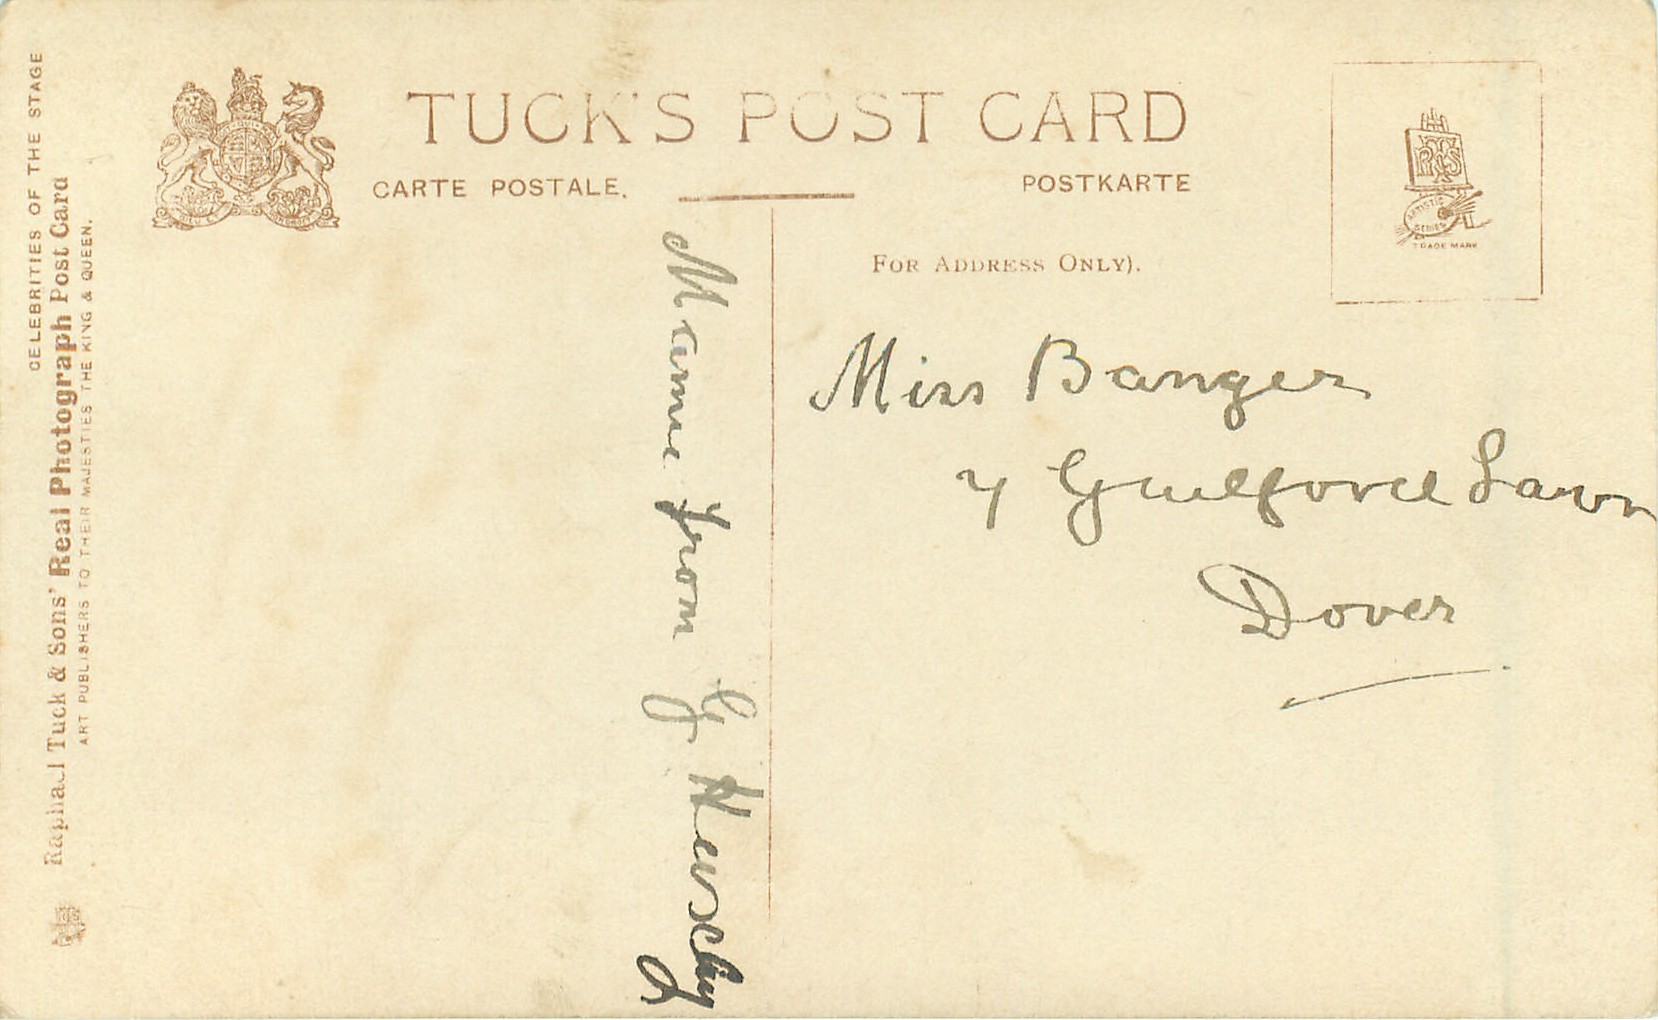 CELEBRITIES OF THE STAGE
Raphael Tuck & Sons' Real Photograph Post Card
ART PUBLISHERS TO THEIR MAJESTIES THE KING & QUEEN.
TUCK'S POST CARD
CARTE POSTALE.
POSTKARTE
FOR ADDRESS ONLY).
ARTISTIC
SERIES
TRADE MARK
from G
Miss Banger
7 Guilford Lawn
Dover